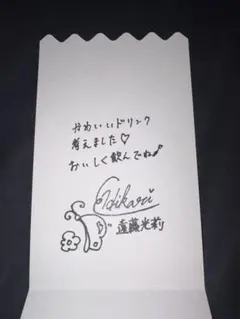 かわいいドリンク
考えました♡
おいしく飲んでね♪
Hikari
遠藤光莉